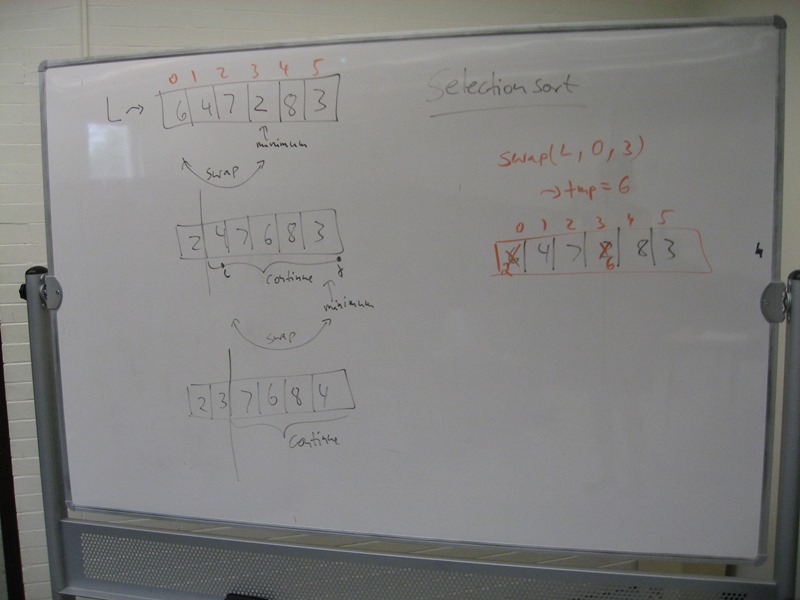 0 1 2 3 4 5
L → 6 4 7 2 8 3
minimum
swap
2 4 7 6 8 3
continue
minimum
swap
2 3 7 6 8 4
continue
Selection sort
swap(L, 0, 3)
→ tmp = 6
0 1 2 3 4 5
4 7 8 3
2 6